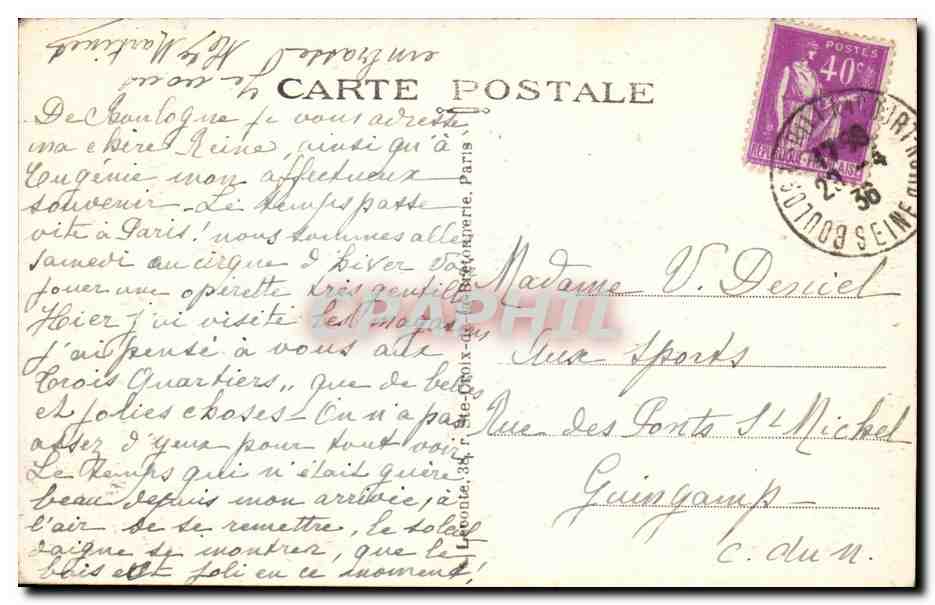 CARTE POSTALE
De Boulogne je vous adresse
ma chère Reine, ainsi qu'à
Eugénie mon affectueux
souvenir - Le temps passe
vite à Paris! nous sommes allés
samedi au cirque d'hiver voir
jouer une opérette très gentille
Hier j'ai visité les magasins
j'ai pensé à vous aux
"Trois Quartiers" que de belles
et jolies choses - On n'a pas
assez d'yeux pour tout voir
Le temps qui n'était guère
beau depuis mon arrivée, a
l'air de se remettre, le soleil
daigne se montrer, que le
bois est joli en ce moment!
Je vous
embrasse
Martines
Leconte, 38, r. Ste-Croix-de-la-Bretonnerie, Paris
POSTES
40c
REPUBLIQUE FRANÇAISE
36
SEINE
CPAPHIL
Madame V. Deniel
Aux Sports
Rue des Ponts St Michel
Guingamp
C. du N.